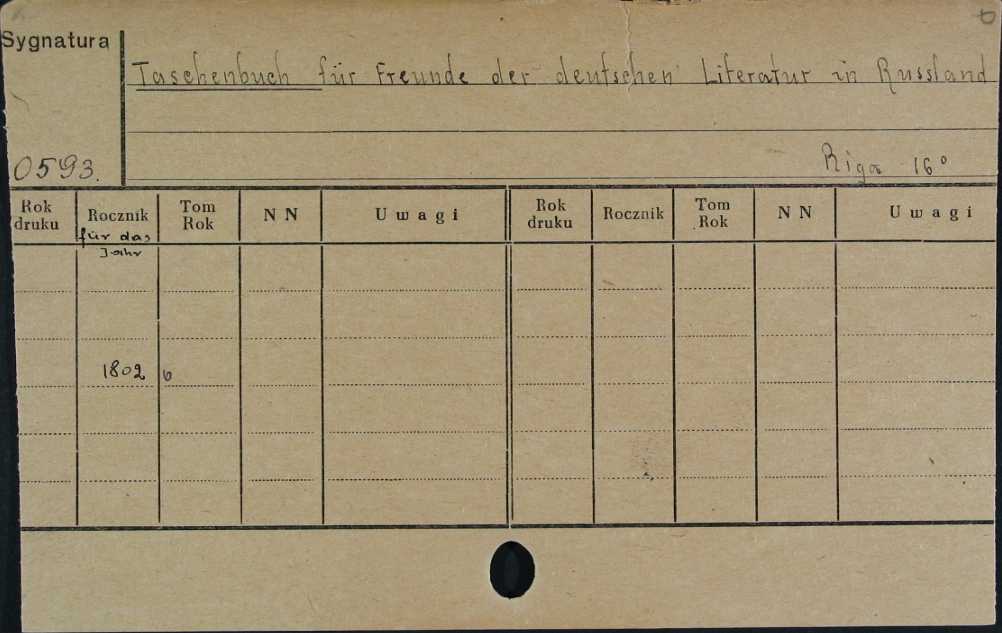 Sygnatura
Taschenbuch für Freunde der deutschen Literatur in Russland
Riga 16°
0593.
Rok druku Rocznik Tom Rok N N Uwagi Rok druku Rocznik Tom Rok N N Uwagi
für das
Jahr
1802 b